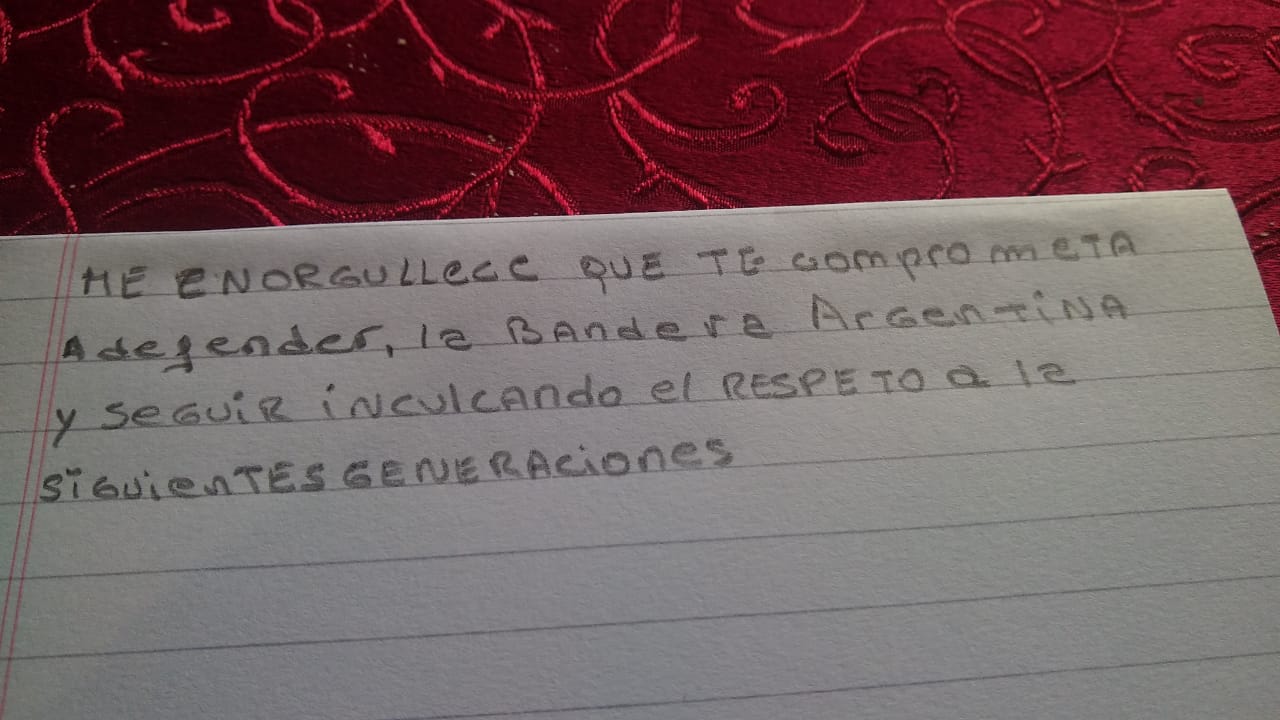 ME ENORGULLECE QUE TE comprometA
A defender, la BAnderа ArGentiNA
y SeGuiR iNCulCAndo el RESPETO a la
SiGuienTES GENERACiones